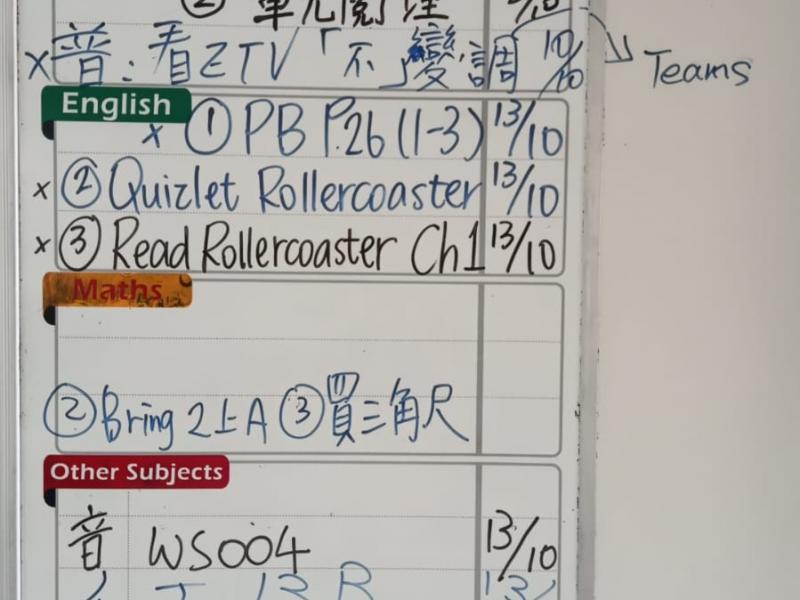 ② 單元閱理 /10
x 音:看ZTV「不」變調 10/10 → Teams
English
x ① PB P.26 (1-3) 13/10
x ② Quizlet Rollercoaster 13/10
x ③ Read Rollercoaster Ch1 13/10
Maths
② Bring 2上A ③ 買三角尺
Other Subjects
音 WS004 13/10